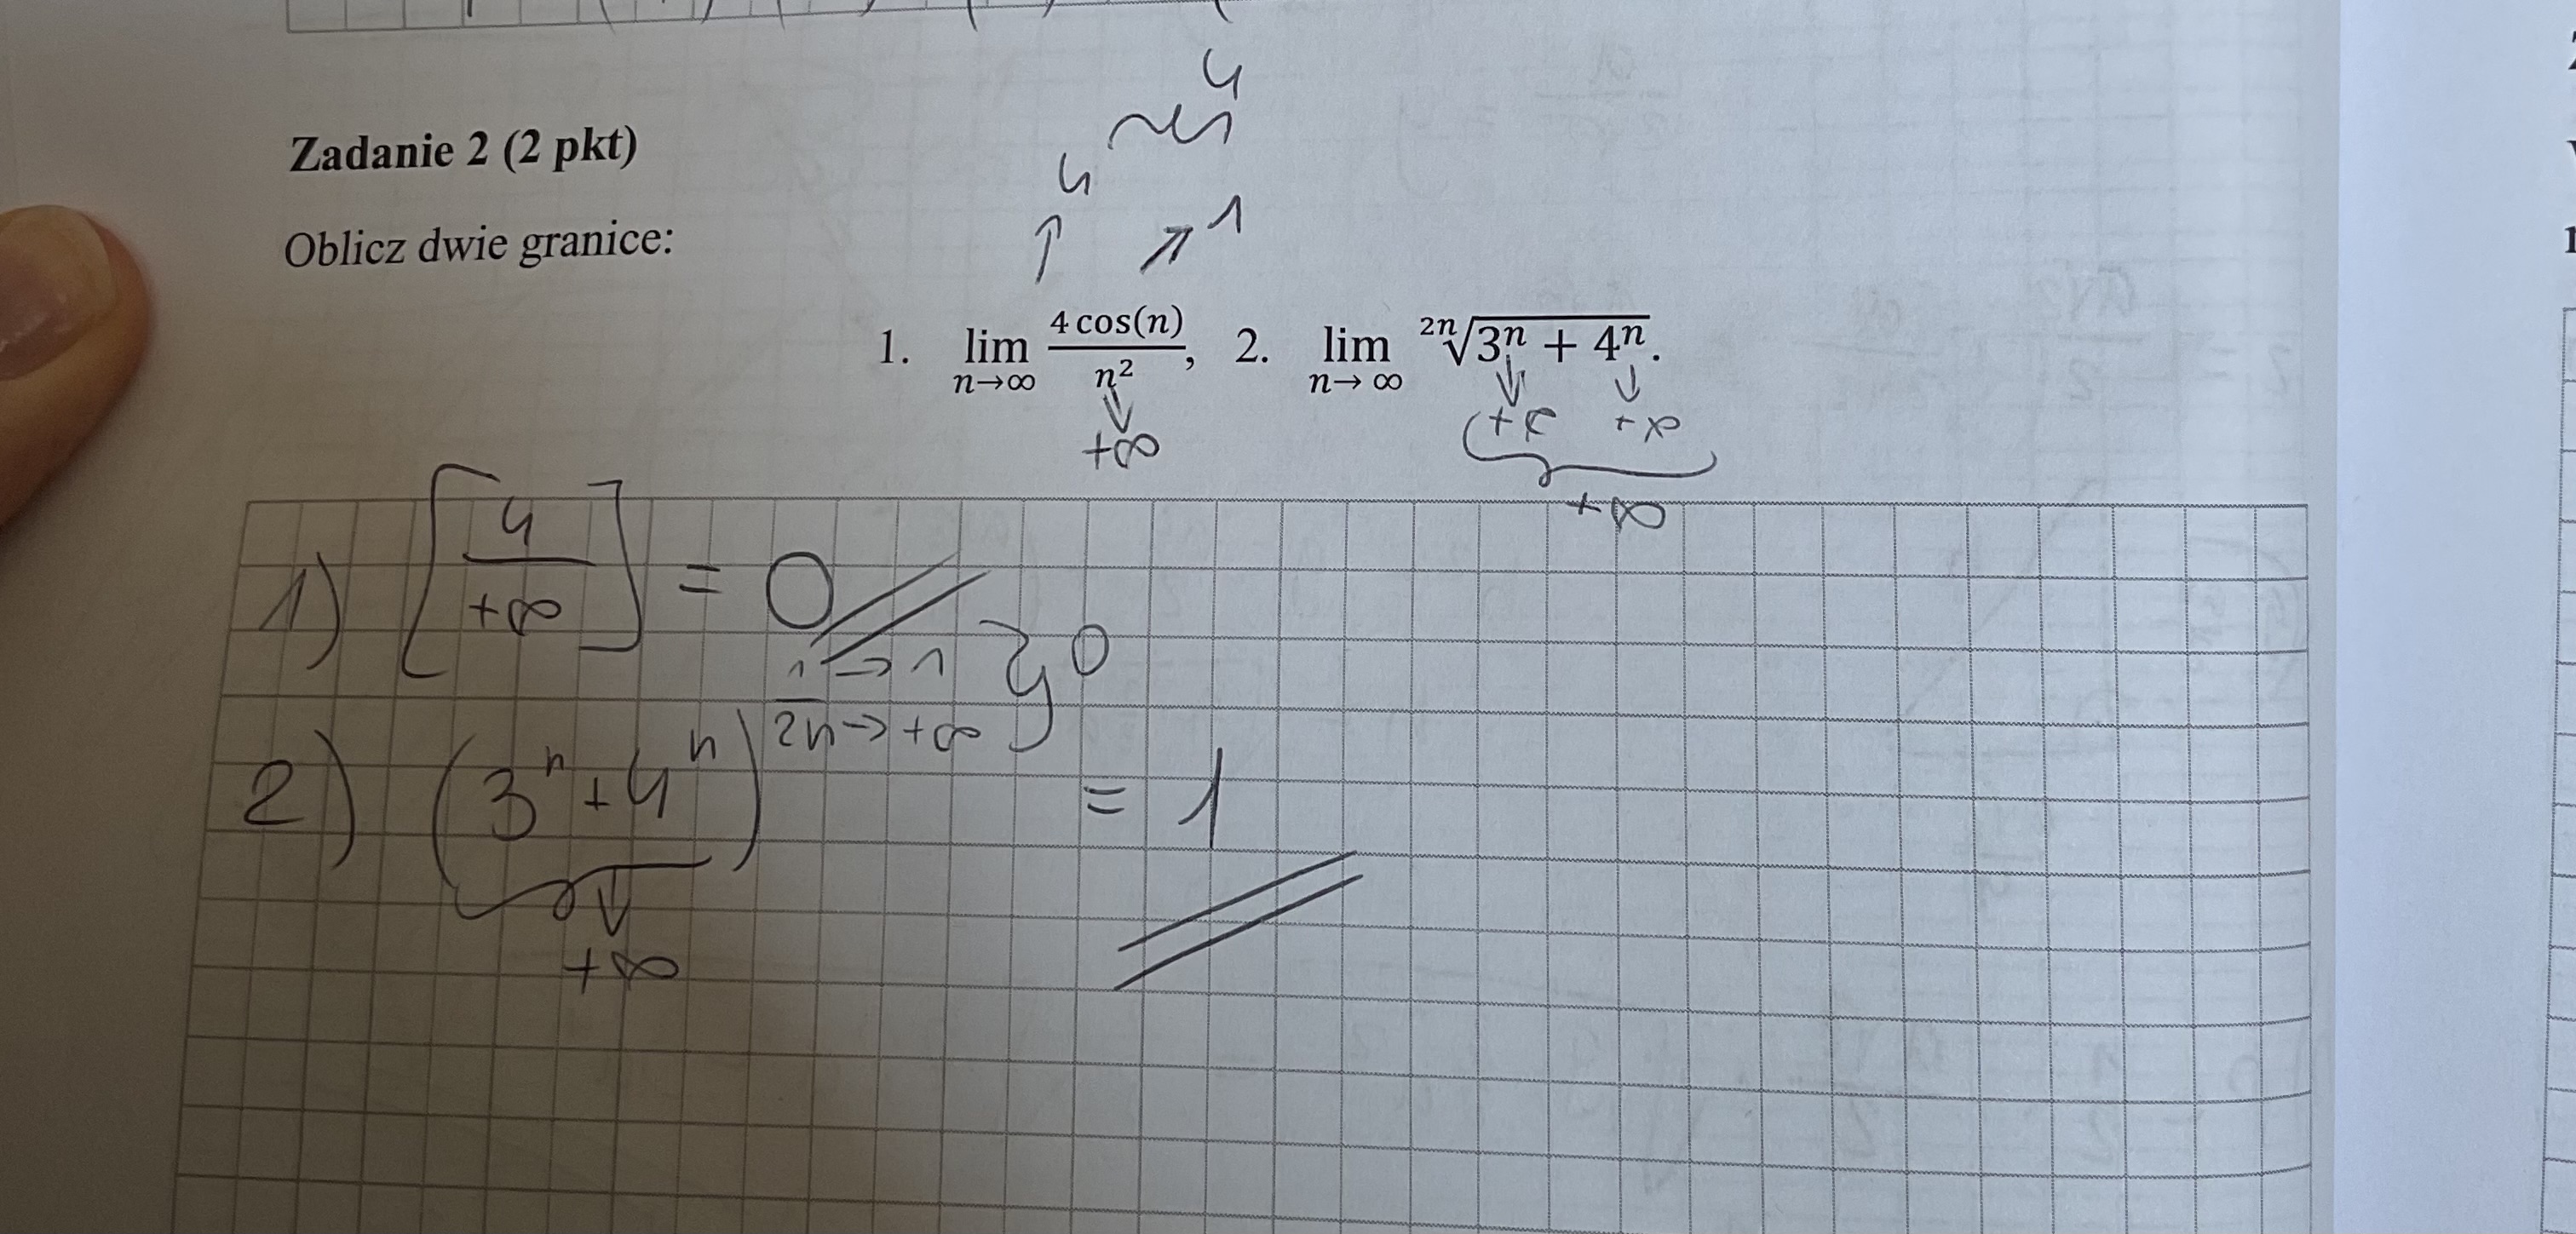 4
4
1
Zadanie 2 (2 pkt)
Oblicz dwie granice:
1. lim n→∞ 4 cos(n) / n², 2. lim n→ ∞ ²ⁿ√(3ⁿ + 4ⁿ).
+∞ +∞ +∞
+∞
1) [4 / +∞] = 0
1 → 1 } 0
2n → +∞
2) (3ⁿ + 4ⁿ) = 1
+∞